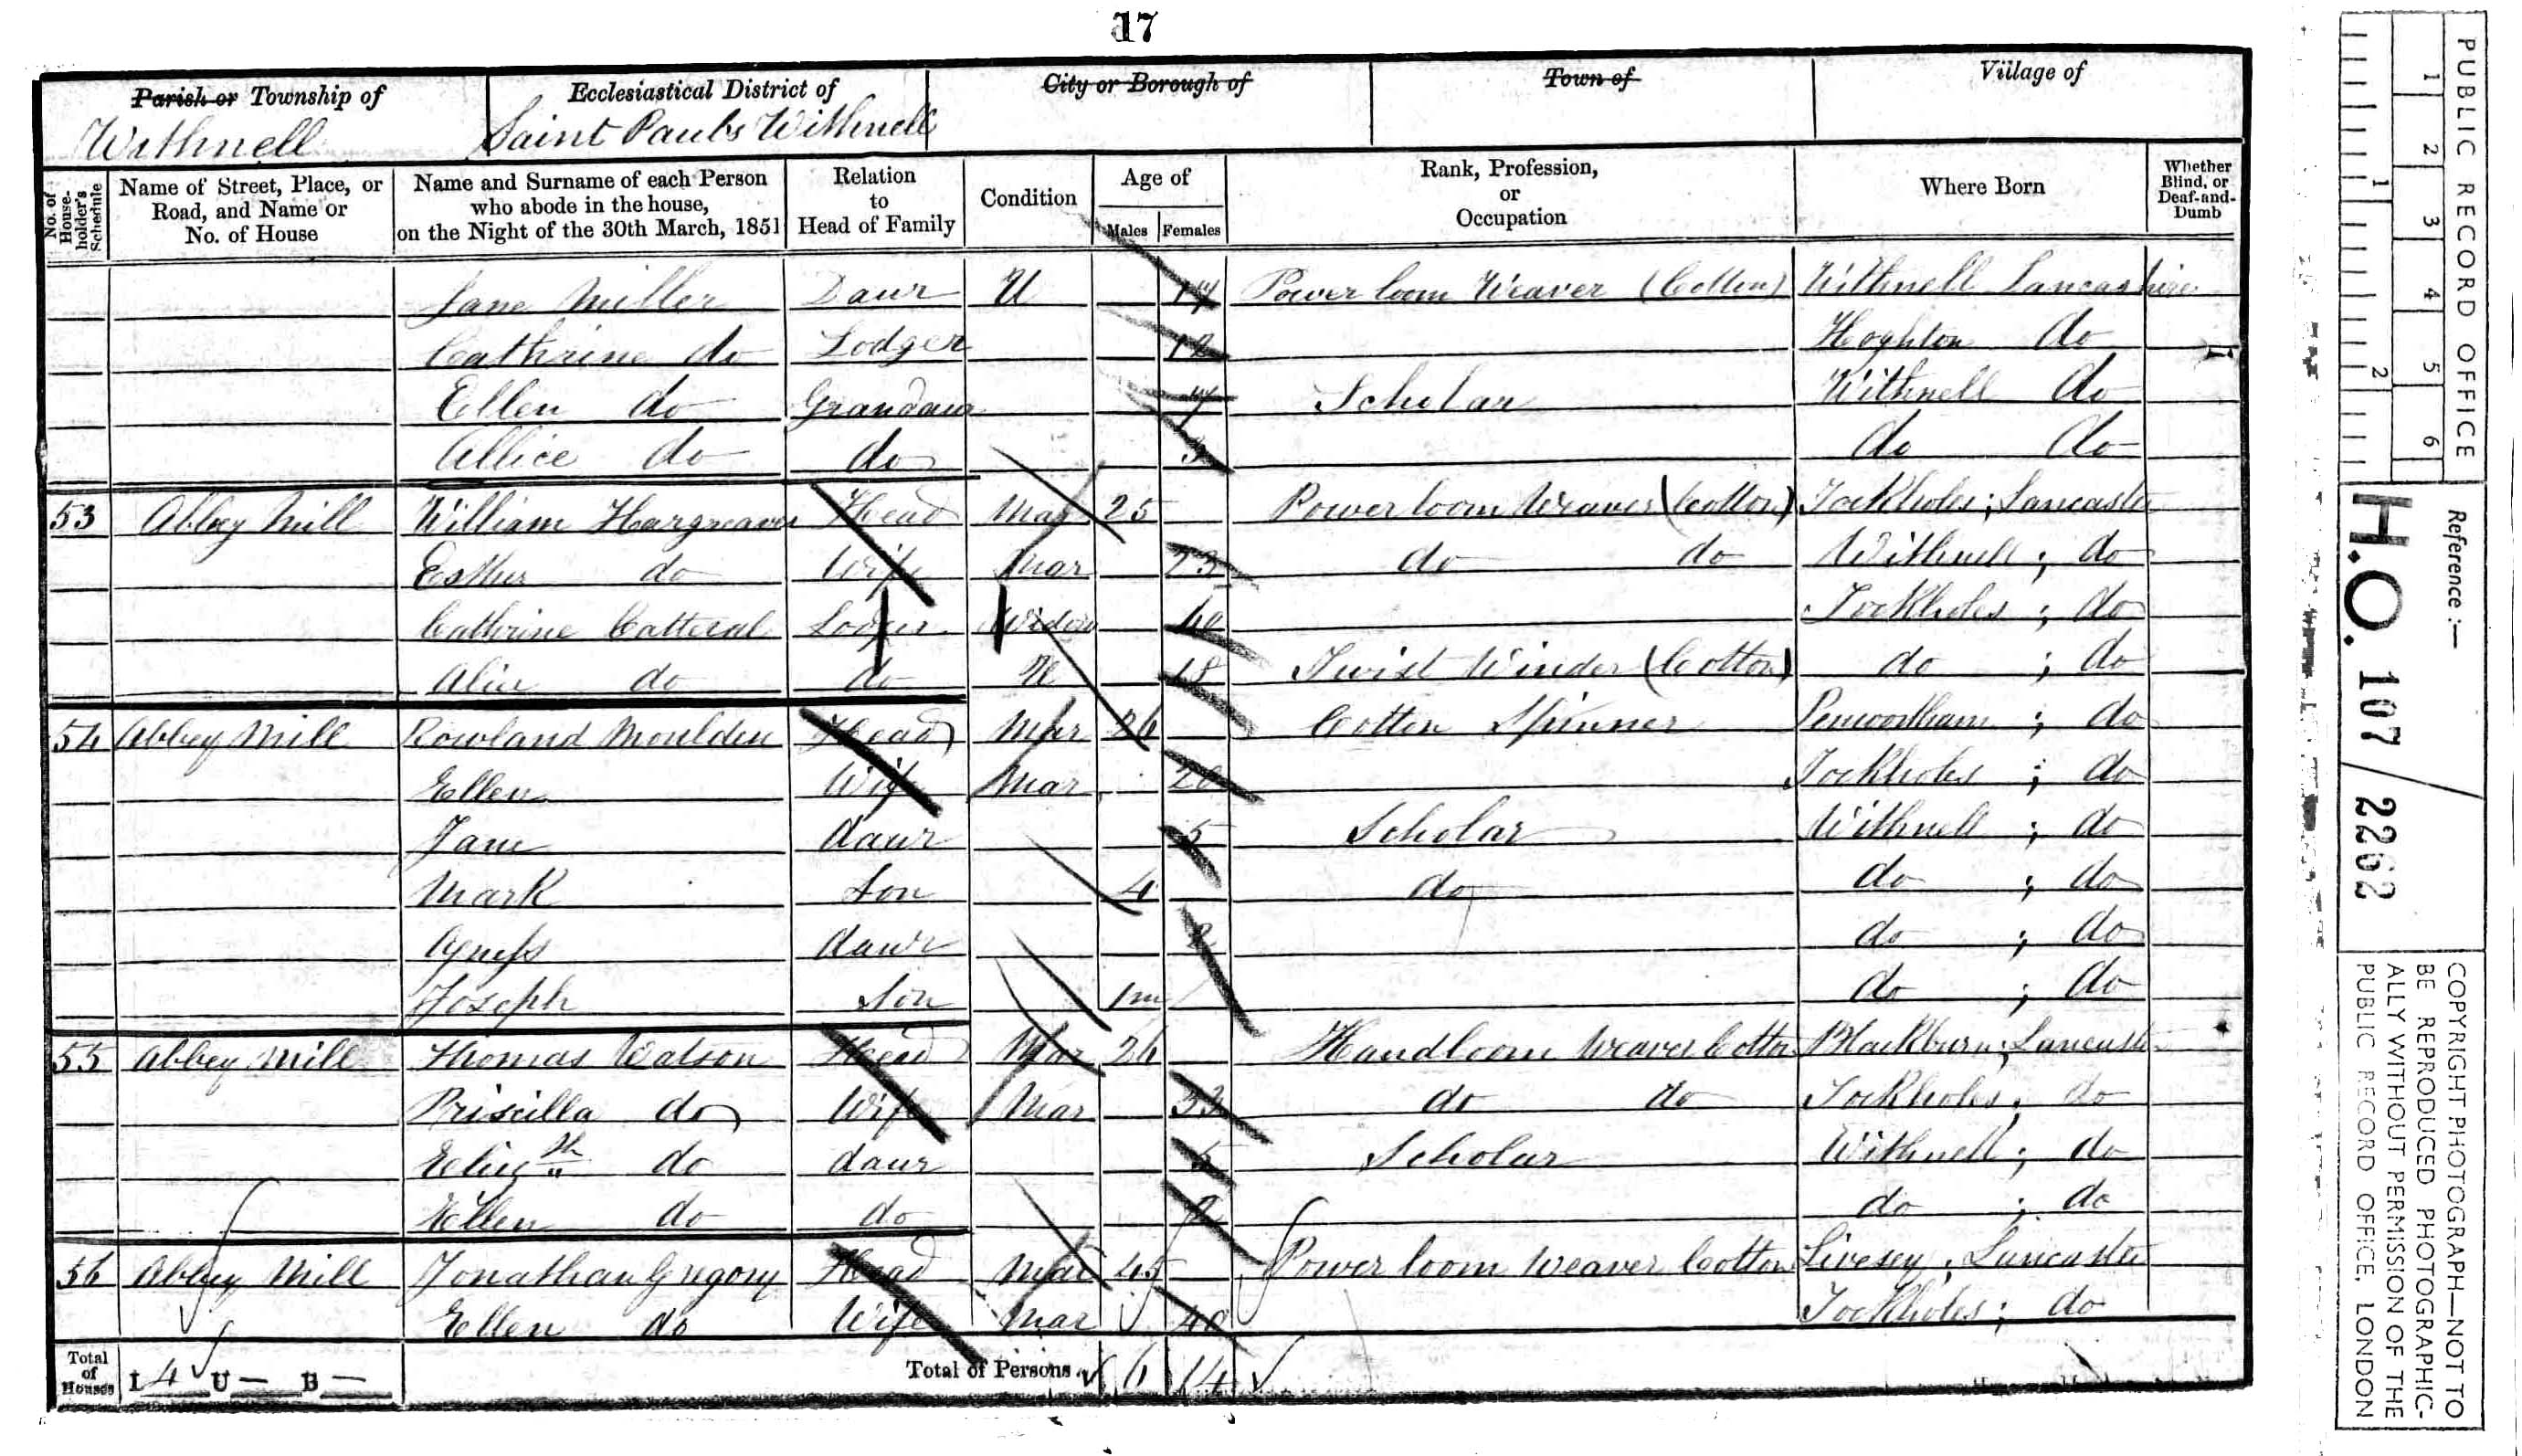 17
Parish or Township of Ecclesiastical District of City or Borough of Town of Village of
Withnell Saint Pauls Withnell
No. of House-holder's Schedule
Name of Street, Place, or Road, and Name or No. of House
Name and Surname of each Person who abode in the house, on the Night of the 30th March, 1851
Relation to Head of Family
Condition
Age of
Males Females
Rank, Profession, or Occupation
Where Born
Whether Blind, or Deaf-and-Dumb
Jane Miller Daur U 17 Power loom Weaver (Cotton) Withnell Lancashire
Cathrine do Lodger 12 Hoghton do
Ellen do Grandaur 7 Scholar Withnell do
Allice do do 3 do do
53 Abbey Mill William Hargreaves Head Mar 25 Power loom Weaver (Cotton) Tockholes; Lancaster
Esther do Wife Mar 23 do do Withnell; do
Cathrine Catteral Lodger Widow 40 Tockholes; do
Alice do do U 18 Twist Winder (Cotton) do; do
54 Abbey Mill Rowland Moulden Head Mar 26 Cotton Spinner Penwortham; do
Ellen Wife Mar 20 Tockholes; do
Jane daur 5 Scholar Withnell; do
Mark Son 4 do do; do
Agness daur 2 do; do
Joseph Son 1m do; do
55 Abbey Mill Thomas Watson Head Mar 26 Handloom Weaver Cotton Blackburn; Lancaster
Priscilla do Wife Mar 33 do do Tockholes; do
Eliz th do daur 5 Scholar Withnell; do
Ellen do do 2 do; do
56 Abbey Mill Jonathan Gregory Head Mar 45 Power loom Weaver Cotton Livesey; Lancaster
Ellen do Wife Mar 40 Tockholes; do
Total of Houses I 4 U — B — Total of Persons 6 14
PUBLIC RECORD OFFICE
1 2 3 4 5 6
1 2
Reference :—
H.O. 107/2262
COPYRIGHT PHOTOGRAPH—NOT TO
BE REPRODUCED PHOTOGRAPHIC-
ALLY WITHOUT PERMISSION OF THE
PUBLIC RECORD OFFICE, LONDON